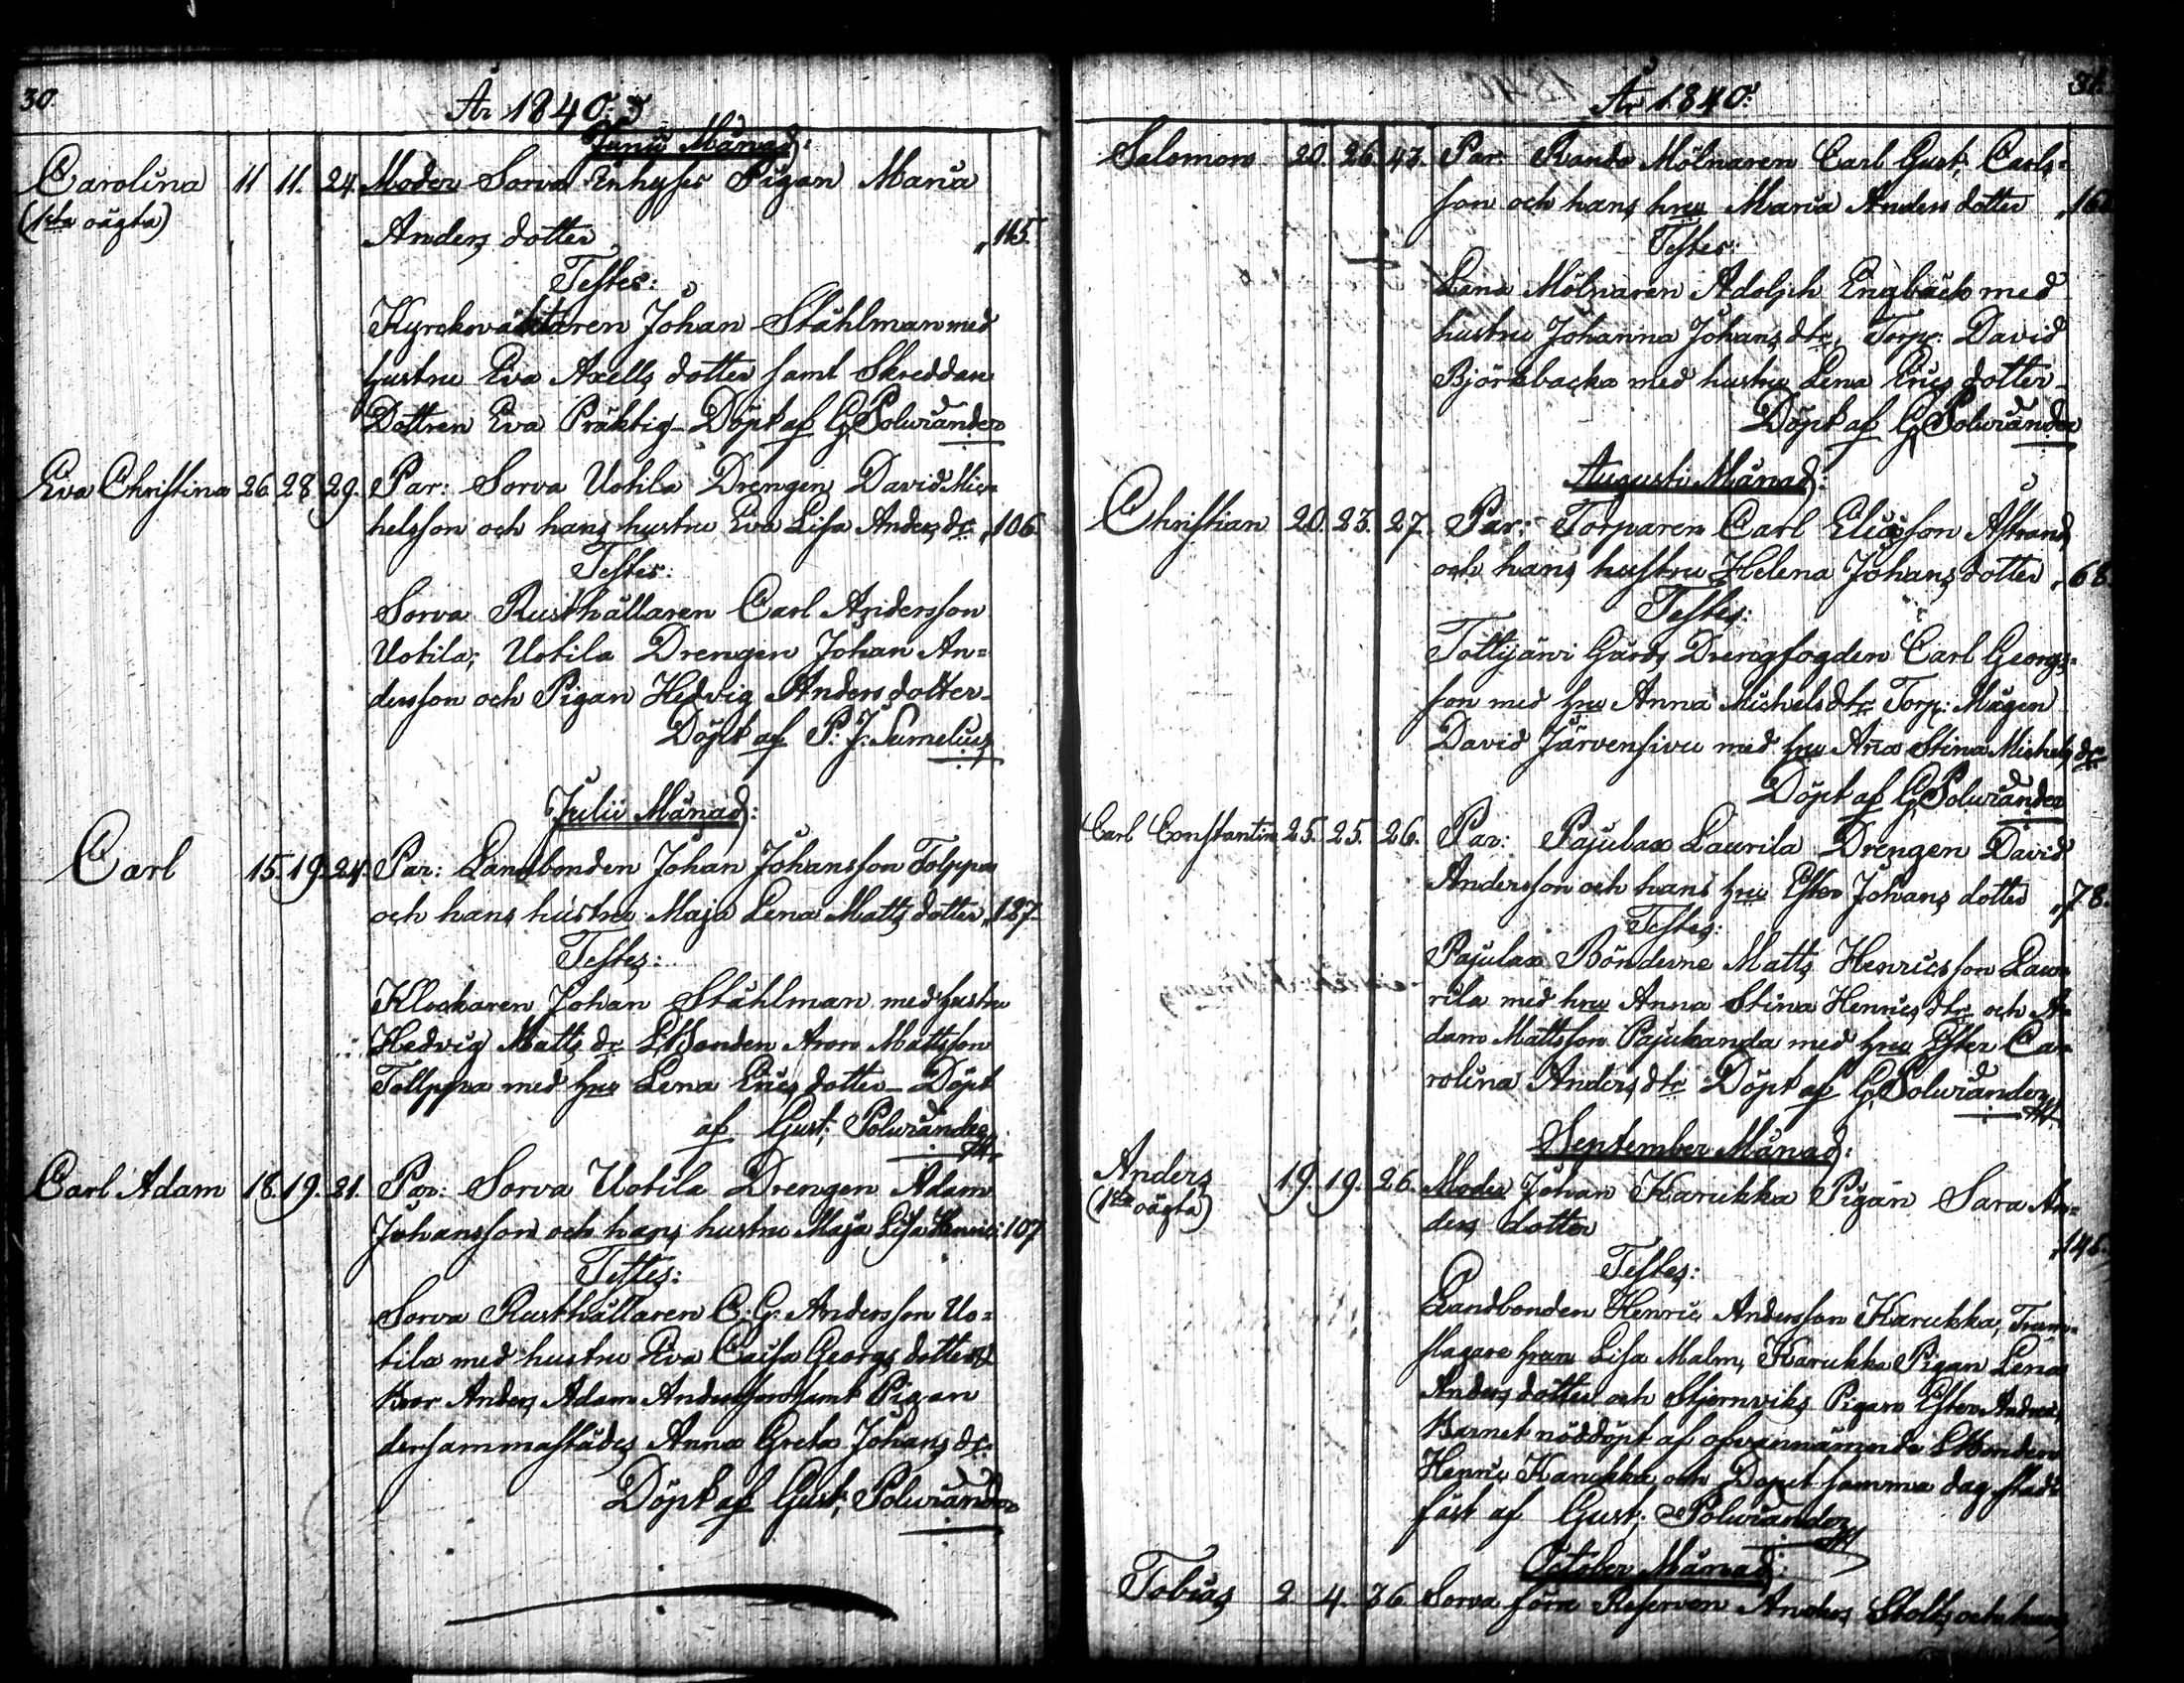 30
År 1840.
Junii Månad:
Carolina 11 11. 24. Moder Sorva Inhyses Pigan Maria
(1sta oägta)
Anders dotter „115.
Testes:
Kyrckováktaren Johan Ståhlman med
hustru Eva Axells dotter samt Skreddare
Dottren Eva Präktig – Döpt af G. Polviander
Eva Christina 26. 28. 29. Par: Sorva Uotila Drengen David Mic=
helsson och hans hustru Eva Lisa Anders dr „106.
Testes:
Sorva Rusthållaren Carl Andersson
Uotila, Uotila Drengen Johan An=
dersson och Pigan Hedvig Anders dotter –
Döpt af P. J. Sumelius
Julii Månad:
Carl 15. 19. 24. Par: Landbonden Johan Johansson Tolppa
och hans hustru Maja Lena Matts dotter „127.
Testes:
Klockaren Johan Ståhlman med hustru
Hedvig Matts dr LBonden Aron Mattsson
Tollppa med hru Lena Erics dotter – Döpt
af Gust. Polviander
Carl Adam 18. 19. 21. Par: Sorva Uotila Drengen Adam
Johansson och hans hustru Maja Lisa Henrics: 107
Testes:
Sorva Rusthållaren C. G. Andersson Uo=
tila med hustru Eva Caisa Georgs dotter
Bror Anders Adam Andersson samt Pigan
dersammastädes Anna Greta Johans dr
Döpt af Gust. Polviander
År 1840.
31.
Salomon 20. 26. 43. Par: Mölnaren Carl Gust. Carls=
son och hans hru Maria Anders dotter
Testes:
Lana Mölnaren Adolph Engbäck med
hustru Johanna Johans dtr, Torp: David
Björkbacka med hustru Lena Erics dotter –
Döpt af G. Polviander
Augusti Månad:
Christian 20. 23. 27. Par: Torparen Carl Eliasson Åstrand
och hans hustru Helena Johans dotter „68
Testes:
Tottijärvi Gårds Drengfogden Carl Georgs=
son med hru Anna Michels dtr Torp: Mågen
David Järvensivu med hru Ana Stina Michels dr
Döpt af G. Polviander
Carl Constantin 25. 25. 26. Par: Pajulax Laurila Drengen David
Andersson och hans hru Ester Johans dotter „78.
Testes:
Pajulax Bönderne Matts Henricsson Lau=
rila med hru Anna Stina Henrics dtr och A=
dam Mattsson Pajukanda med hru Ester Ca=
rolina Anders dtr Döpt af G. Polviander
September Månad:
Anders 19. 19. 26. Moder Johan Karukka Pigan Sara An=
(1sta oägta)
ders dotter „146.
Testes:
Landbonden Henric Andersson Karukka, Trum=
slagare hrun Lisa Malm, Karukka Pigan Lena
Anders dotter och Stjernviks Pigan Ester Anders,
Barnet nöddöpt af ofvannämnde LBonden
Henric Karukka och Dopet samma dag stad=
fäst af Gust. Polviander
October Månad:
Tobias 2. 4. 36. Sorva förre Reserven Anders Stolts och hans